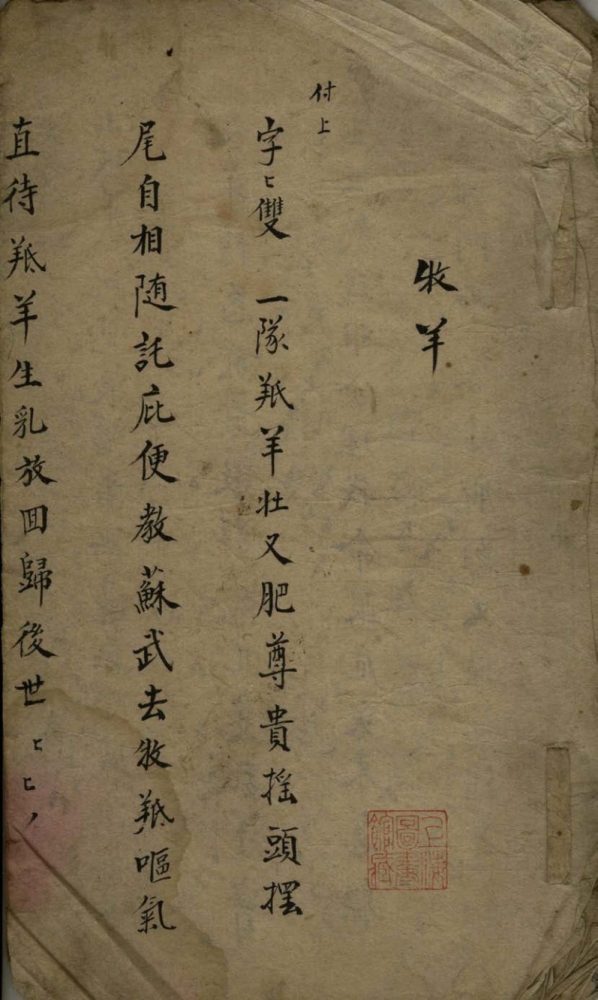 牧羊
付上
字〻雙　一隊羝羊壯又肥尊貴搖頭擺
尾自相随託庇便教蘇武去牧羝嘔氣
直待羝羊生乳放囬歸後世〻〻丿
上海圖書館藏